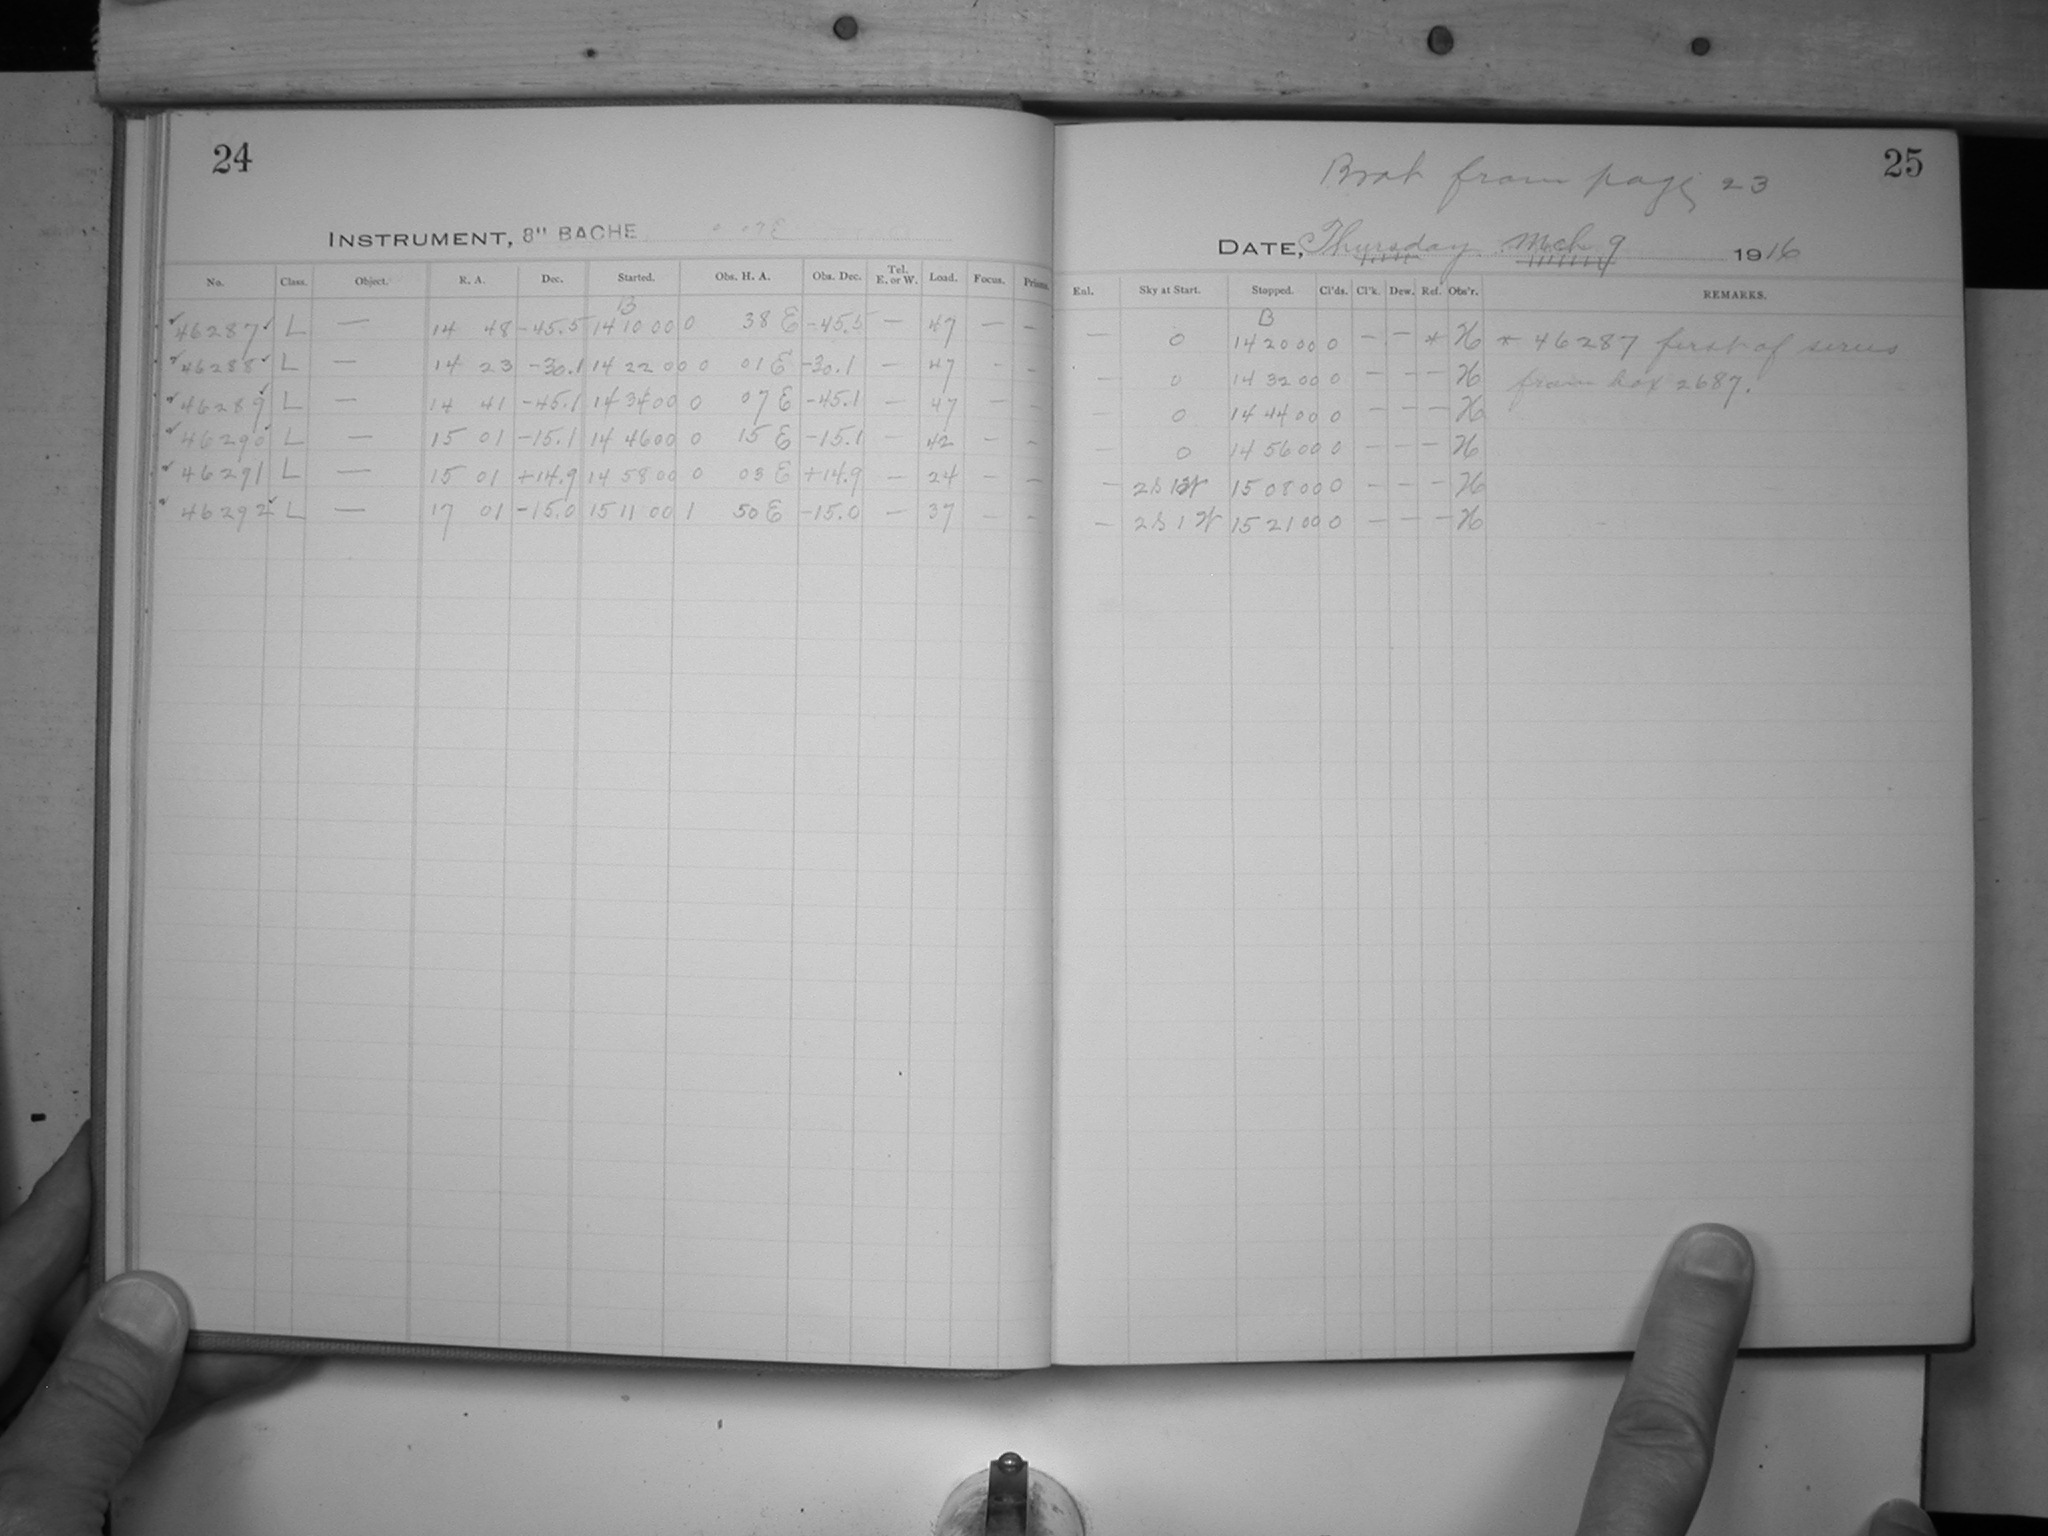 24
INSTRUMENT, 8" BACHE
No. Class. Object. R. A. Dec. Started. Obs. H. A. Obs. Dec. Tel. E. or W. Load. Focus. Prism.
B
46287 L — 14 48 -45.5 14 10 00 0 38 E -45.5 — 47 — —
46288 L — 14 23 -30.1 14 22 00 0 01 E -30.1 — 47 — —
46289 L — 14 41 -45.1 14 34 00 0 07 E -45.1 — 47 — —
46290 L — 15 01 -15.1 14 46 00 0 15 E -15.1 — 42 — —
46291 L — 15 01 +14.9 14 58 00 0 03 E +14.9 — 24 — —
46292 L — 17 01 -15.0 15 11 00 1 50 E -15.0 — 37 — —
25
from page 23
DATE, Thursday Mch 9 1916
Enl. Sky at Start. Stopped. Cl'ds. Cl'k. Dew. Ref. Obs'r. REMARKS.
B
— 0 14 20 00 0 — — * H * 46287 first of series
— 0 14 32 00 0 — — — H from box 2687.
— 0 14 44 00 0 — — — H
— 0 14 56 00 0 — — — H
— 2S 15 08 00 0 — — — H
— 2S 1 W 15 21 00 0 — — — H